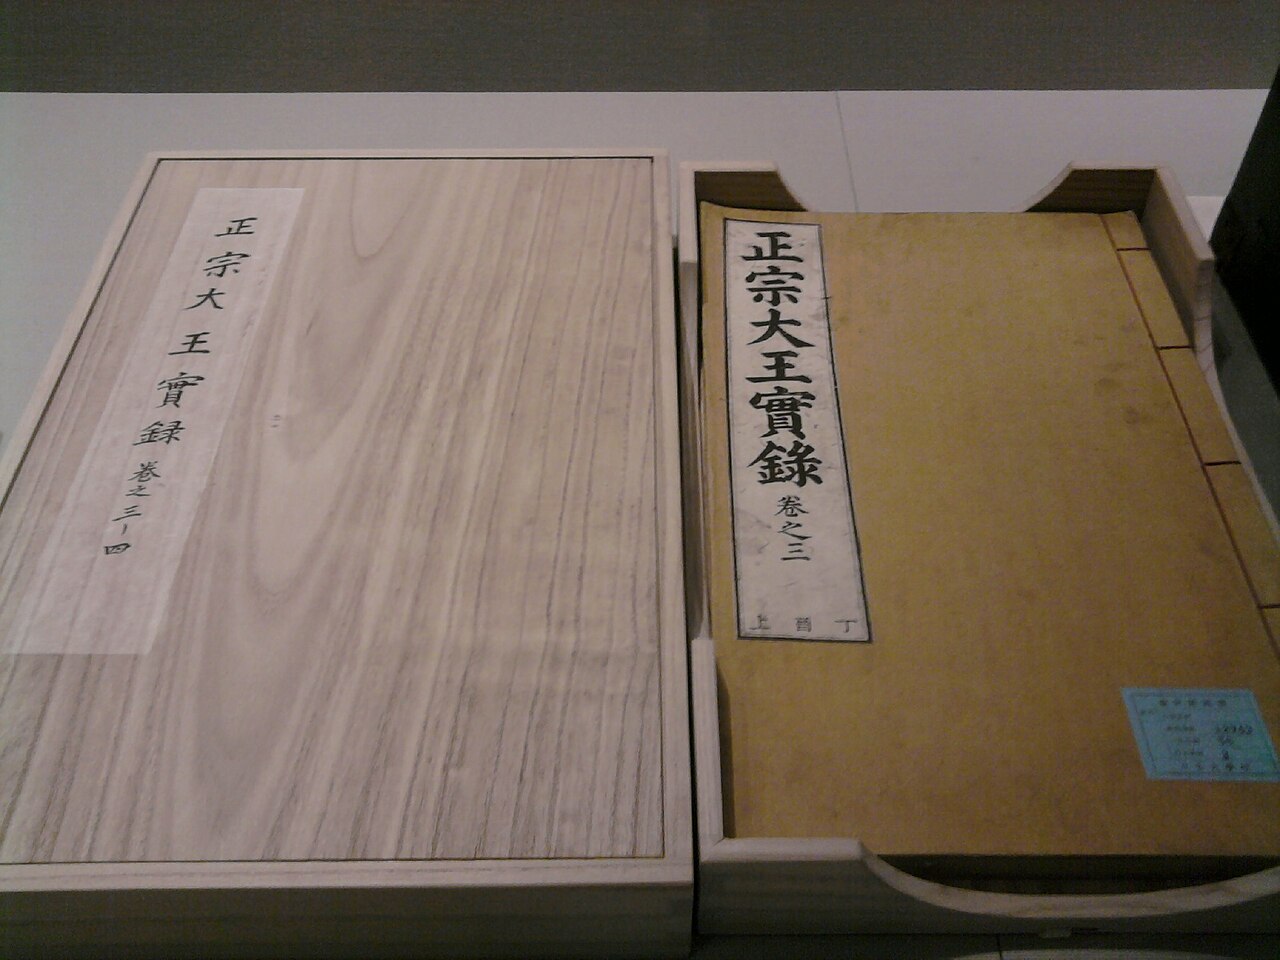 正宗大王實録 卷之三-四
正宗大王實錄 卷之三
上 酋 丁